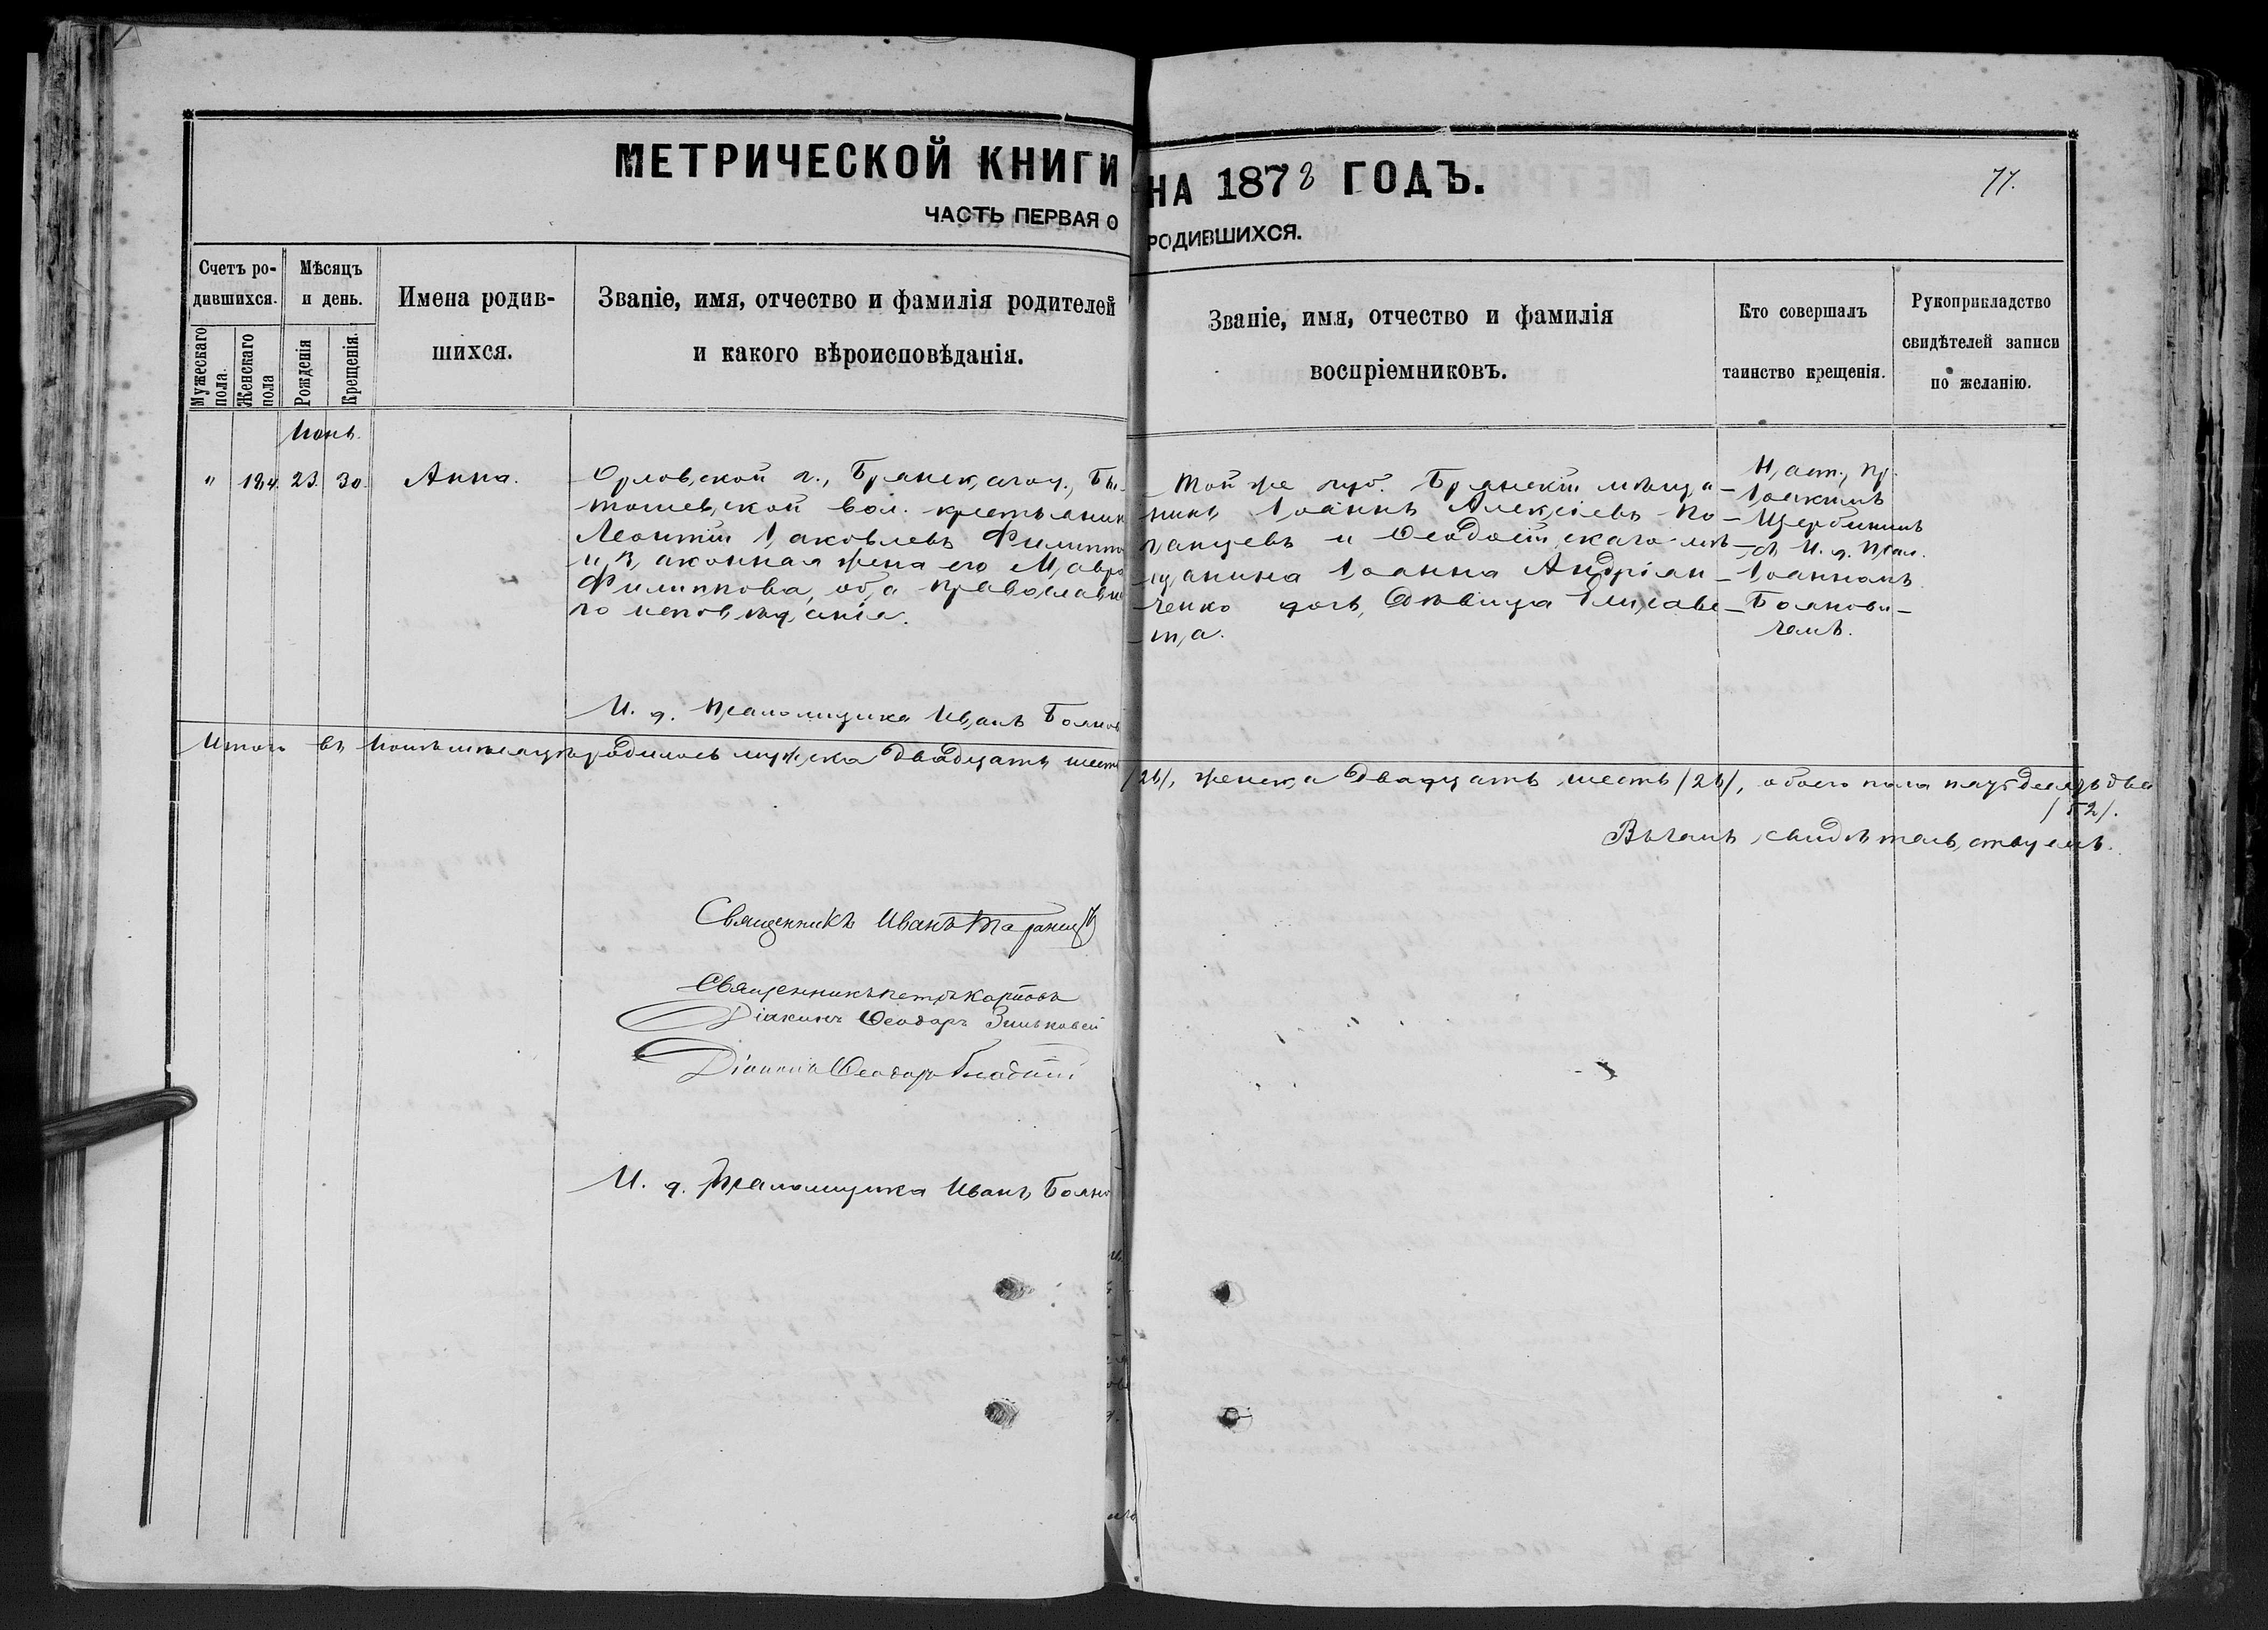 МЕТРИЧЕСКОЙ КНИГИ НА 1878 ГОДЪ.
77.
ЧАСТЬ ПЕРВАЯ О РОДИВШИХСЯ.
Счетъ родившихся.
Мужескаго пола.
Женскаго пола
Мѣсяцъ и день.
Рожденія
Крещенія.
Имена родив-
шихся.
Званіе, имя, отчество и фамилія родителей
и какого вѣроисповѣданія.
Званіе, имя, отчество и фамилія
воспріемниковъ.
Кто совершалъ
таинство крещенія.
Рукоприкладство
свидѣтелей записи
по желанію.
Іюнь.
" 184. 23. 30. Анна.
Орловской г., Брянскаго у., Бы-
тошевской вол. крестьянин
Леонтій Іаковлевъ Филиппо
и законная жена его Мавра
Филиппова, оба православна
го исповѣданія.
Той же губ. Брянскій мѣща-
нинъ Іоаннъ Алексіевъ По-
ганцевъ и Ѳеодосійскаго мѣ-
щанина Іоанна Андріян-
ченко дочь, дѣвица Елисаве-
та.
Наст. пр.
Іоакимъ
Щербининъ
съ И. д. псал.
Іоанномъ
Боянови-
чемъ.
И. д. Псаломщика Иванъ Боянов
Итого въ Іюнѣ мѣсяцѣ родилось мужска двадцать шесть /26/, женска двадцать шесть /26/, обоего пола пятьдесятъ два
/52/.
Въ чемъ свидѣтельствуемъ.
Священникъ Иванъ
Священникъ Петръ Карповъ
Діаконъ Ѳеодоръ
Діаконъ Ѳеодоръ
И. д. Псаломщика Иванъ Боянов